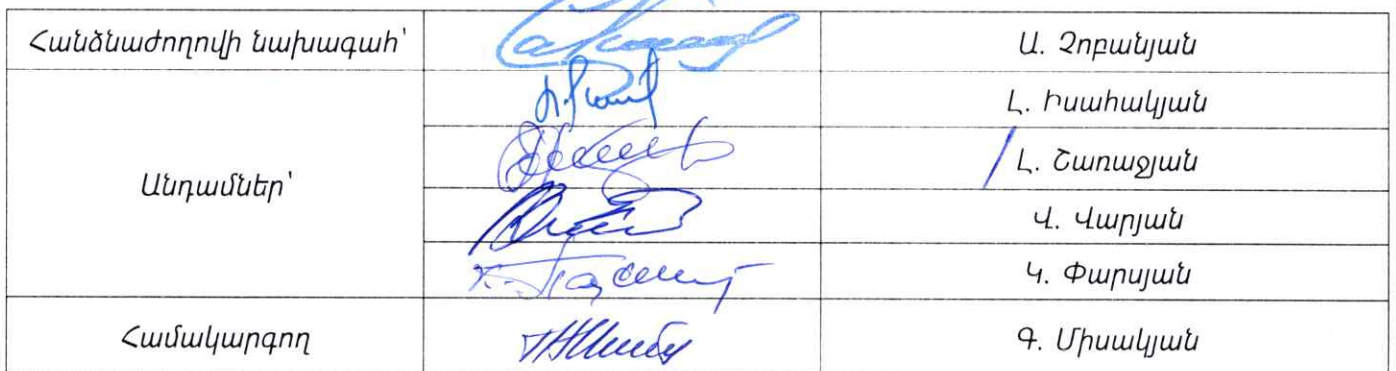 Հանձնաժողովի նախագահ՝ Ա. Չոբանյան
Լ. Իսահակյան
Անդամներ՝ Լ. Շառաջյան
Վ. Վարյան
Կ. Փարսյան
Համակարգող Գ. Միսակյան